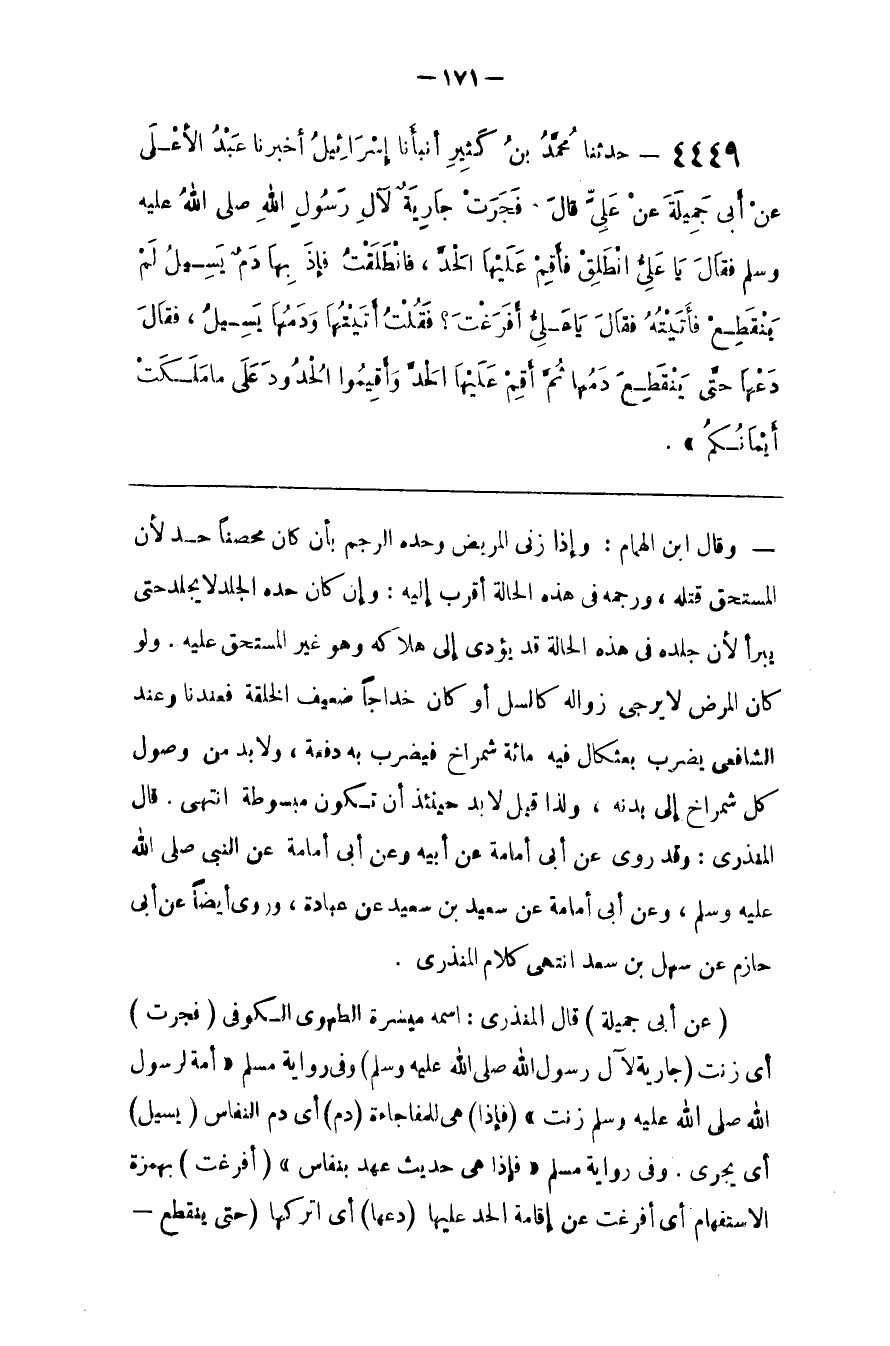 – ١٧١ –
٤٤٤٩ – حدثنا مُحمَّدُ بنُ كَثِيرٍ أنبأَنا إسْرَائِيلُ أخبرنا عَبْدُ الأعْلَى
عنْ أبى جَمِيلَةَ عنْ عَلِىٍّ قالَ · فَجَرَتْ جارِيَةٌ لَآلِ رَسُولِ اللهِ صلى اللهُ عليه
وسلم فقالَ يَا عَلِىُّ انْطَلِقْ فأَقِمْ عَلَيْهَا الْحَدَّ ، فانْطَلَقْتُ فإذَ بِها دَمٌ يَسِيلُ لَمْ
يَنْقَطِعْ فأَتَيْتُهُ فقالَ يَاعَلِىُّ أفَرَغْتَ؟ فَقُلْتُ أتَيْتُهَا وَدَمُهَا يَسِيلُ ، فقالَ
دَعْهَا حتَّى يَنْقَطِعَ دَمُها ثُمَّ أقِمْ عَلَيْهَا الْحَدَّ وَأقِيمُوا الْحُدُودَ عَلَى مامَلَكَتْ
أيْمَانُكُمُ » .
– وقال ابن الهمام : وإذا زنى المريض وحده الرجم بأن كان محصناً حد لأن
المستحق قتله ، ورجمه فى هذه الحالة أقرب إليه : وإن كان حده الجلد لا يجلد حتى
يبرأ لأن جلده فى هذه الحالة قد يؤدى إلى هلاكه وهو غير المستحق عليه . ولو
كان المرض لا يرجى زواله كالسل أو كان خداجاً ضعيف الخلقة فعندنا وعند
الشافعى يضرب بعثكال فيه مائة شمراخ فيضرب به دفعة ، ولا بد من وصول
كل شمراخ إلى بدنه ، ولذا قيل لا بد حينئذ أن تكون مبسوطة انتهى . قال
المنذرى : وقد روى عن أبى أمامة عن أبيه وعن أبى أمامة عن النبى صلى الله
عليه وسلم ، وعن أبى أمامة عن سعيد بن سعيد عن عبادة ، وروى أيضاً عن أبى
حازم عن سهل بن سعد انتهى كلام المنذرى .
( عن أبى جميلة ) قال المنذرى : اسمه ميسرة الطهوى الكوفى ( فجرت )
أى زنت (جارية لآل رسول الله صلى الله عليه وسلم) وفى رواية مسلم « أمة لرسول
الله صلى الله عليه وسلم زنت » (فإذا) هى للمفاجاءة (دم) أى دم النفاس ( يسيل)
أى يجرى . وفى رواية مسلم « فإذا هى حديث عهد بنفاس » ( أفرغت ) بهمزة
الاستفهام أى أفرغت عن إقامة الحد عليها (دعها) أى اتركها (حتى ينقطع –